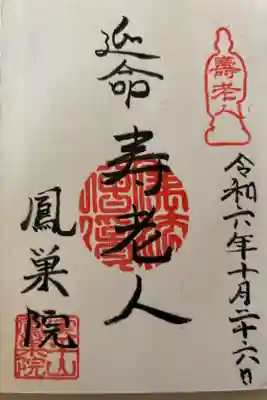 壽老人
令和六年十月二十六日
延命
寿老人
鳳巣院